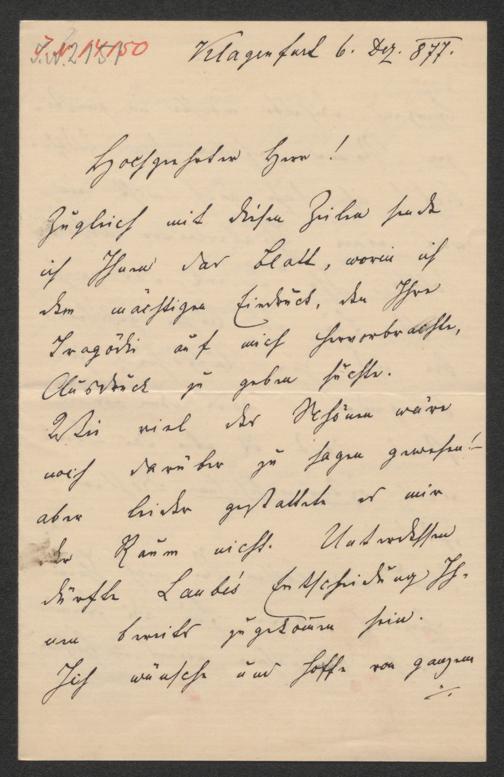 J.N. 14150
Klagenfurt 6. Dez. 877.
Hochgeehrter Herr!
Zugleich mit diesen Zeilen sende
ich Ihnen das Blatt, worin ich
dem mächtigen Eindruck, den Ihre
Tragödie auf mich hervorbrachte,
Ausdruck zu geben suchte.
Wie viel des Schönen wäre
noch darüber zu sagen gewesen!
aber leider gestattete es mir
der Raum nicht. Unterdessen
dürfte Laube's Entscheidung Ih-
nen bereits zugekom̅en sein.
Ich wünsche und hoffe von ganzem